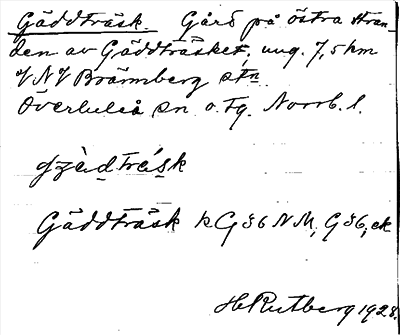 Gäddträsk. Gård på östra stran-
den av Gäddträsket, ung. 7,5 km
VNV Brännberg stn.
Överluleå sn o. Tg. Norrb. l.
gzàdtrásk
Gäddträsk k G 36 NM, G 36, ek
H Rutberg 1928.